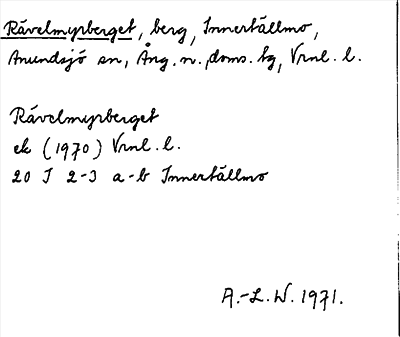 Rävelmyrberget, berg, Innertällmo,
Anundsjö sn, Ång. n. doms. tg, Vrnl. l.
Rävelmyrberget
ek (1970) Vrnl. l.
20 J 2-3 a-b Innertällmo
A.-L. W. 1971.